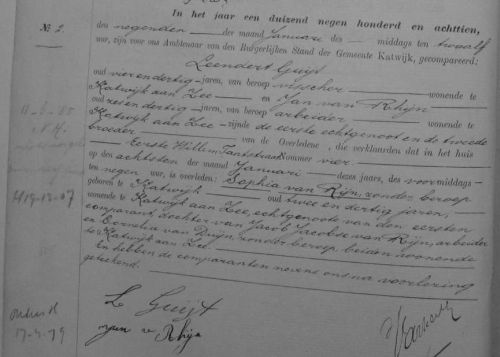 In het jaar een duizend negen honderd en achttien,
№ 2.
den negenden der maand Januari des middags ten twaalf
ure, zijn voor ons Ambtenaar van den Burgerlijken Stand der Gemeente Katwijk, gecompareerd:
Leendert Guijt
oud vier en dertig jaren, van beroep visscher wonende te
Katwijk aan Zee en Jan van Rhijn
oud zes en dertig jaren, van beroep arbeider wonende te
Katwijk aan Zee zijnde de eerste echtgenoot en de tweede
broeder van de Overledene, die verklaarden dat in het huis
Eerste Hillen Nommer vier.
op den achtsten der maand Januari dezes jaars, des voormiddags
ten negen ure, is overleden: Sophia van Rijn, zonder beroep
oud twee en dertig jaren,
geboren te Katwijk
wonende te Katwijk aan Zee, echtgenoote van den eersten
comparant, dochter van Jacob van Rijn, arbeider
en Cornelia van Duijn, zonder beroep, beiden wonende
te Katwijk aan Zee.
En hebben de comparanten nevens ons na voorlezing
geteekend.
L Guijt
Rhijn